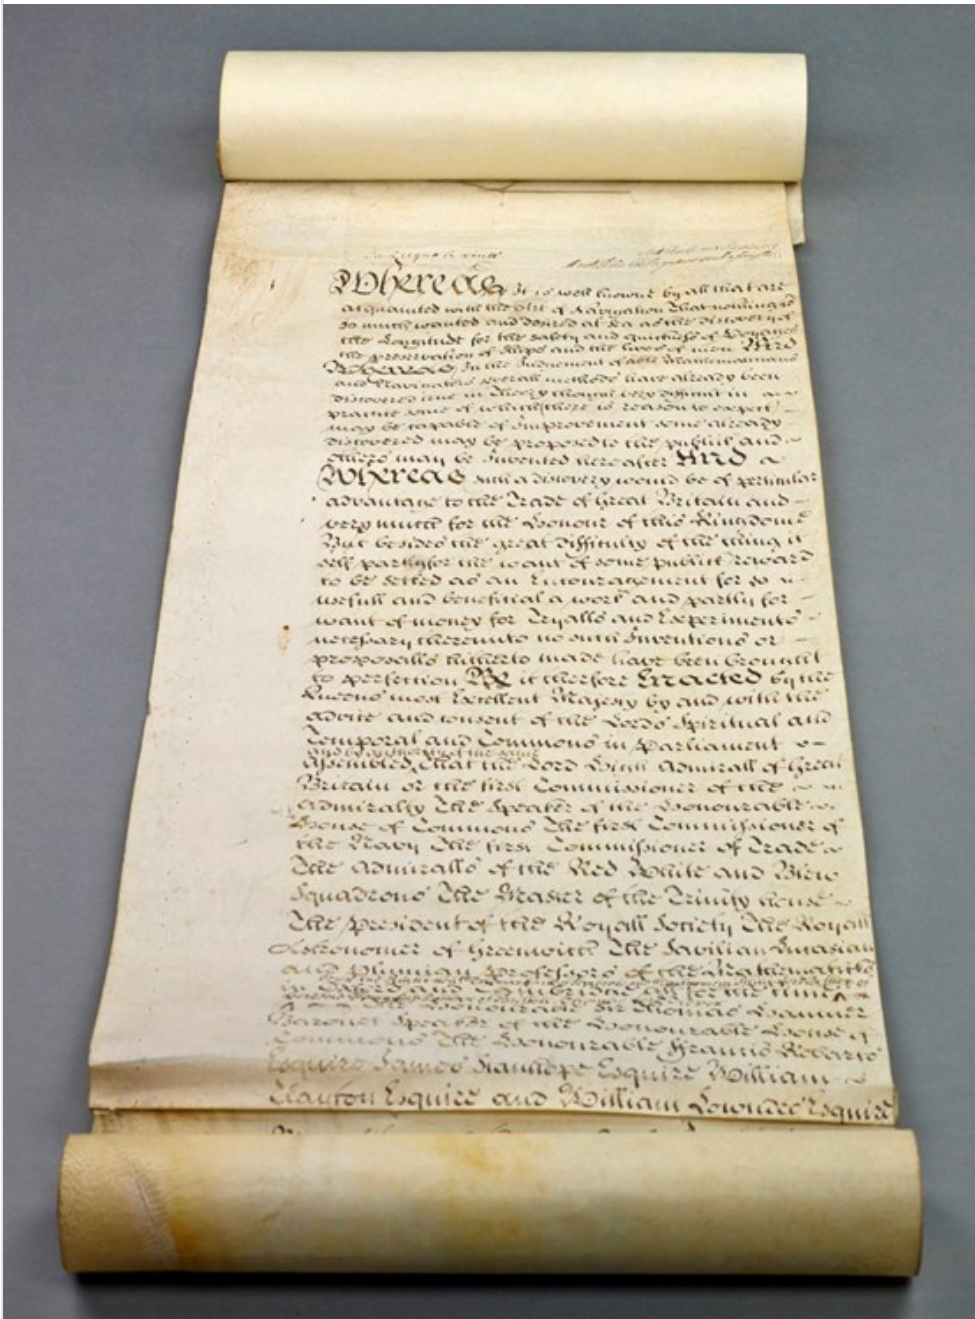 Whereas It is well knowne by all that are
acquainted with the Art of Navigation That nothing is
so much wanted and desired at Sea as the discovery of
the Longitude for the safety and quickness of Voyages
the preservation of Ships and the lives of men And
Whereas In the Judgment of able Mathematicians
and Navigators severall methods have already been
discovered true in Theory though very difficult in
practice some of which there is reason to expect
may be capable of Improvement some already
discovered may be proposed to the publick and
others may be Invented hereafter And
Whereas such a discovery would be of perticular
advantage to the Trade of Great Britain and
very much for the Honour of this Kingdome
But besides the great difficulty of the thing it
self partly for the want of some publick reward
to be setled as an Encouragement for so
usefull and beneficial a work and partly for
want of money for Tryalls and Experiments
necessary thereunto no such Inventions or
proposalls hitherto made have been brought
to perfection Be it therefore Enacted by the
Queens most Excellent Majesty by and with the
advice and consent of the Lords Spiritual and
Temporal and Commons in Parliament
and by authority of the same
Assembled That the Lord High Admirall of Great
Britain or the first Commissioner of the
Admiralty The Speaker of the Honourable
House of Commons The first Commissioner of
the Navy The first Commissioner of Trade
The Admiralls of the Red White and Blew
Squadrons The Master of the Trinity house
The president of the Royall Society The Royall
Astronomer of Greenwich The Savilian Lucasian
and Plumian professors of the Mathematicks
in Oxford and Cambridge all for the time
Honourable Sir Thomas Hanmer
Baronet Speaker of the Honourable House of
Commons The Honourable Francis Robarts
Esquire James Stanhope Esquire William
Clayton Esquire and William Lowndes Esquire